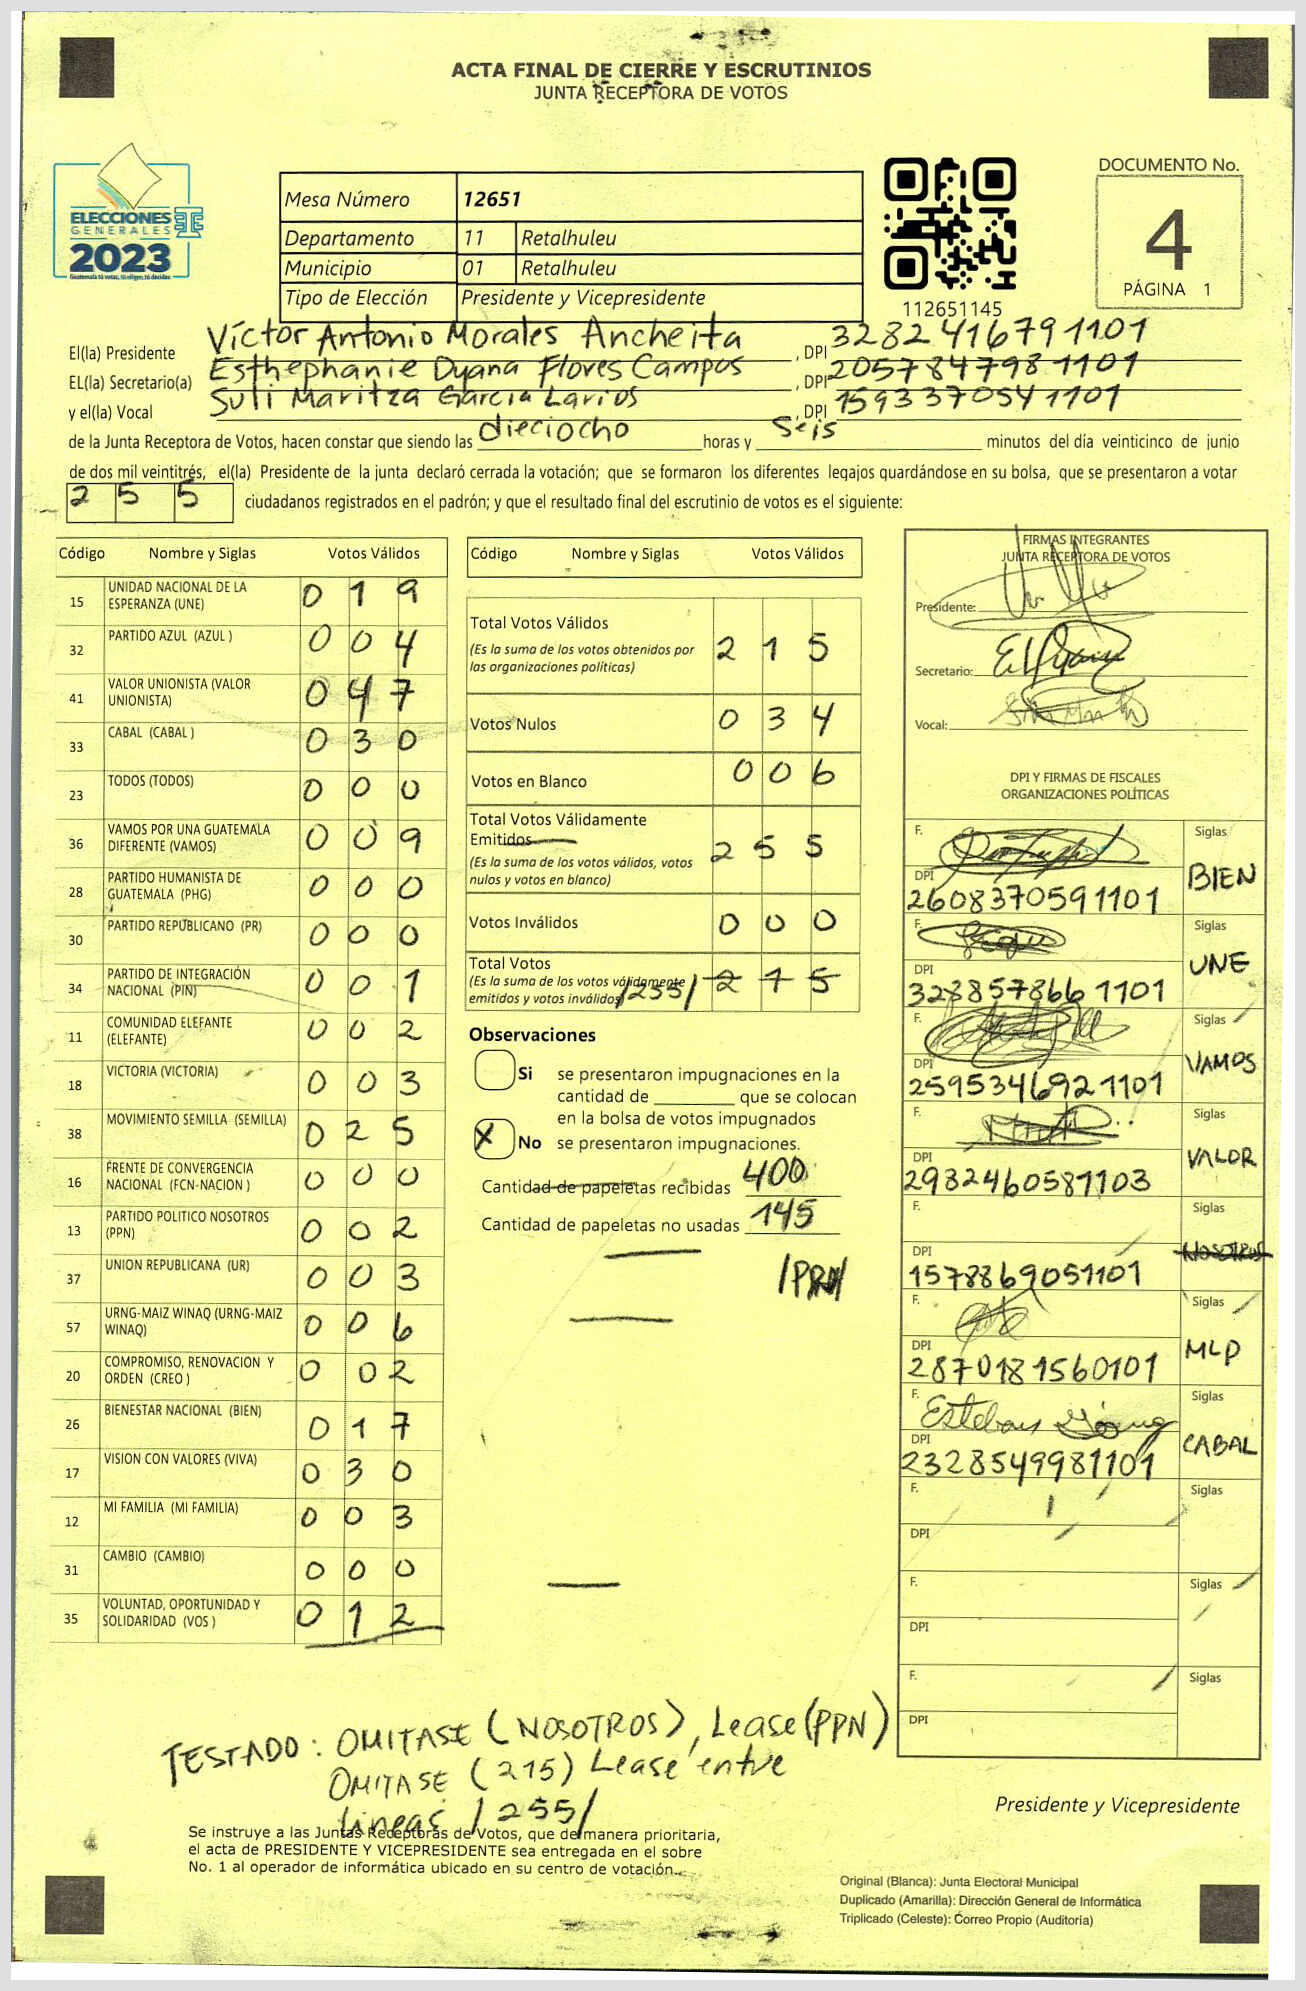 ACTA FINAL DE CIERRE Y ESCRUTINIOS
JUNTA RECEPTORA DE VOTOS
ELECCIONES
GENERALES
2023
Guatemala tú votas, tú eliges, tú decides
Mesa Número 12651
Departamento 11 Retalhuleu
Municipio 01 Retalhuleu
Tipo de Elección Presidente y Vicepresidente
112651145
DOCUMENTO No.
4
PÁGINA 1
El(la) Presidente Víctor Antonio Morales Ancheita , DPI 3282416791101
EL(la) Secretario(a) Esthephanie Dyana Flores Campos , DPI 2057847981101
y el(la) Vocal Suli Maritza Garcia Larios , DPI 1593370541101
de la Junta Receptora de Votos, hacen constar que siendo las dieciocho horas y seis minutos del día veinticinco de junio
de dos mil veintitrés, el(la) Presidente de la junta declaró cerrada la votación; que se formaron los diferentes legajos quardándose en su bolsa, que se presentaron a votar
2 5 5 ciudadanos registrados en el padrón; y que el resultado final del escrutinio de votos es el siguiente:
Código Nombre y Siglas Votos Válidos
15 UNIDAD NACIONAL DE LA ESPERANZA (UNE) 0 1 9
32 PARTIDO AZUL (AZUL ) 0 0 4
41 VALOR UNIONISTA (VALOR UNIONISTA) 0 4 7
33 CABAL (CABAL ) 0 3 0
23 TODOS (TODOS) 0 0 0
36 VAMOS POR UNA GUATEMALA DIFERENTE (VAMOS) 0 0 9
28 PARTIDO HUMANISTA DE GUATEMALA (PHG) 0 0 0
30 PARTIDO REPUBLICANO (PR) 0 0 0
34 PARTIDO DE INTEGRACIÓN NACIONAL (PIN) 0 0 1
11 COMUNIDAD ELEFANTE (ELEFANTE) 0 0 2
18 VICTORIA (VICTORIA) 0 0 3
38 MOVIMIENTO SEMILLA (SEMILLA) 0 2 5
16 FRENTE DE CONVERGENCIA NACIONAL (FCN-NACION ) 0 0 0
13 PARTIDO POLITICO NOSOTROS (PPN) 0 0 2
37 UNION REPUBLICANA (UR) 0 0 3
57 URNG-MAIZ WINAQ (URNG-MAIZ WINAQ) 0 0 6
20 COMPROMISO, RENOVACION Y ORDEN (CREO ) 0 0 2
26 BIENESTAR NACIONAL (BIEN) 0 1 7
17 VISION CON VALORES (VIVA) 0 3 0
12 MI FAMILIA (MI FAMILIA) 0 0 3
31 CAMBIO (CAMBIO) 0 0 0
35 VOLUNTAD, OPORTUNIDAD Y SOLIDARIDAD (VOS ) 0 1 2
Código Nombre y Siglas Votos Válidos
Total Votos Válidos 2 1 5
(Es la suma de los votos obtenidos por
las organizaciones políticas)
Votos Nulos 0 3 4
Votos en Blanco 0 0 6
Total Votos Válidamente
Emitidos 2 5 5
(Es la suma de los votos válidos, votos
nulos y votos en blanco)
Votos Inválidos 0 0 0
Total Votos
(Es la suma de los votos válidamente
emitidos y votos inválidos) /255/ 2 1 5
Observaciones
Si se presentaron impugnaciones en la
cantidad de ________ que se colocan
en la bolsa de votos impugnados
X No se presentaron impugnaciones.
Cantidad de papeletas recibidas 400
Cantidad de papeletas no usadas 145
FIRMAS INTEGRANTES
JUNTA RECEPTORA DE VOTOS
Presidente:
Secretario:
Vocal:
DPI Y FIRMAS DE FISCALES
ORGANIZACIONES POLÍTICAS
F. Siglas
DPI 2608370591101 BIEN
F. Siglas
DPI 3288578661101 UNE
F. Siglas
DPI 2595346921101 VAMOS
F. Siglas
DPI 2982460581103 VALOR
F. Siglas
DPI 1578869051101 NOSOTROS
F. Siglas
DPI 2870181560101 MLP
F. Esteban Siglas
DPI 2328549981101 CABAL
F. Siglas
DPI
F. Siglas
DPI
F. Siglas
DPI
TESTADO: OMITASE (NOSOTROS), Lease (PPN)
OMITASE (215) Lease entre
lineas /255/
Presidente y Vicepresidente
Se instruye a las Juntas Receptoras de Votos, que de manera prioritaria,
el acta de PRESIDENTE Y VICEPRESIDENTE sea entregada en el sobre
No. 1 al operador de informática ubicado en su centro de votación.
Original (Blanca): Junta Electoral Municipal
Duplicado (Amarilla): Dirección General de Informática
Triplicado (Celeste): Correo Propio (Auditoría)